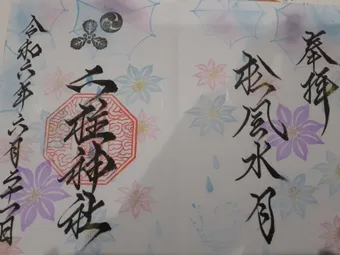 奉拝
松風水月
二柱神社
令和六年六月二十一日